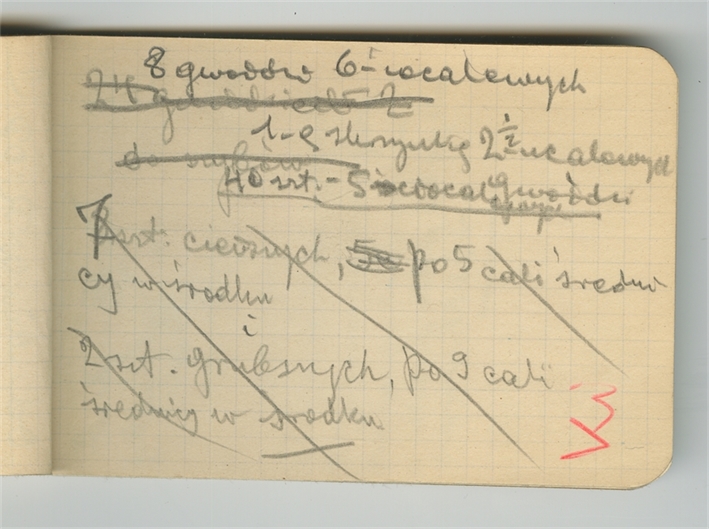 8 gwoździ 6-iocalowych
24
1-ą skrzynkę 2½ calowych
do
40 szt. - 5 iocal. gwoździ
7 szt. cieńszych, po 5 cali średni
cy w środku
i
2 szt. grubszych, po 9 cali
średnicy w środku